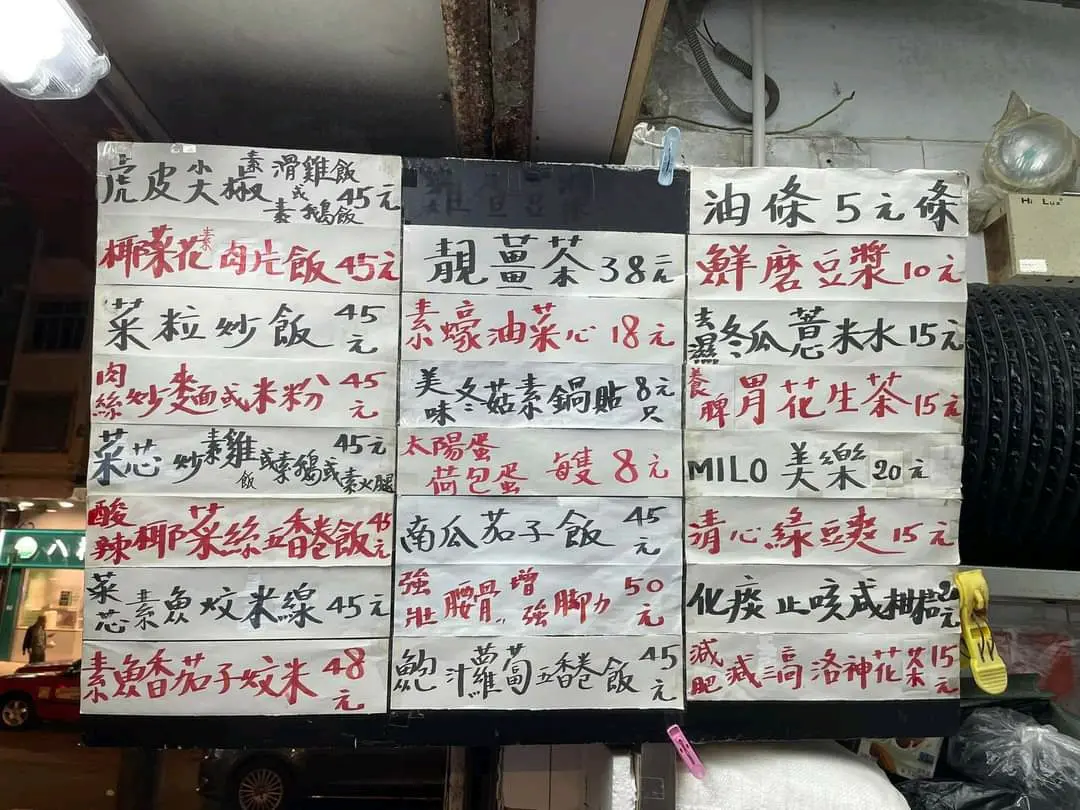 虎皮尖椒素滑雞飯或素鵝飯45元
椰菜花素肉片飯45元
菜粒炒飯45元
肉絲炒麵或米粉45元
菜芯炒素雞飯或素鵝或素火腿45元
酸辣椰菜絲五香卷飯45元
菜芯素魚炆米線45元
素魚香茄子炆米48元
靚薑茶38元
素蠔油菜心18元
美味冬菇素鍋貼8元只
太陽蛋荷包蛋每隻8元
南瓜茄子飯45元
強壯腰骨增強腳力50元
鮑汁蘿蔔五香卷飯45元
油條5元條
鮮磨豆漿10元
去濕冬瓜薏米水15元
養脾胃花生茶15元
MILO美樂20元
清心綠豆爽15元
化痰止咳咸柑桔
減肥減三高洛神花茶15元
Hi Lux